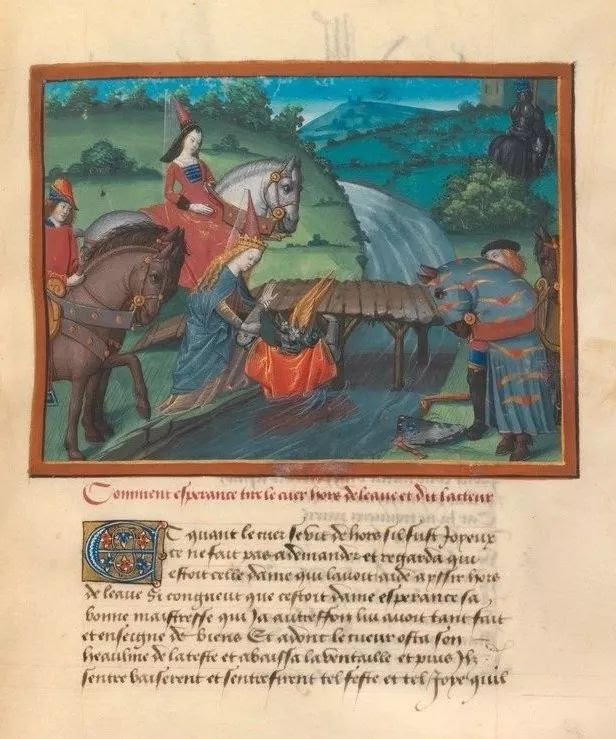 Comment esperance tire le cuer hors de leaue et dit lacteur
Et quant le cuer se vit dehors sil fust Joyeux
ce ne fait pas a demander et regarda qui
estoit celle dame qui lauoit aide a yssir hors
de leaue Si congneut que cestoit dame esperance sa
bonne maistresse qui Ja autreffoiz luy auoit tant fait
et enseigne de biens Et adont le cueur osta son
heaulme de la teste et abaissa la ventaille et puis Ilz
sentre baiserent et sentrefirent tel feste et tel Joye quil